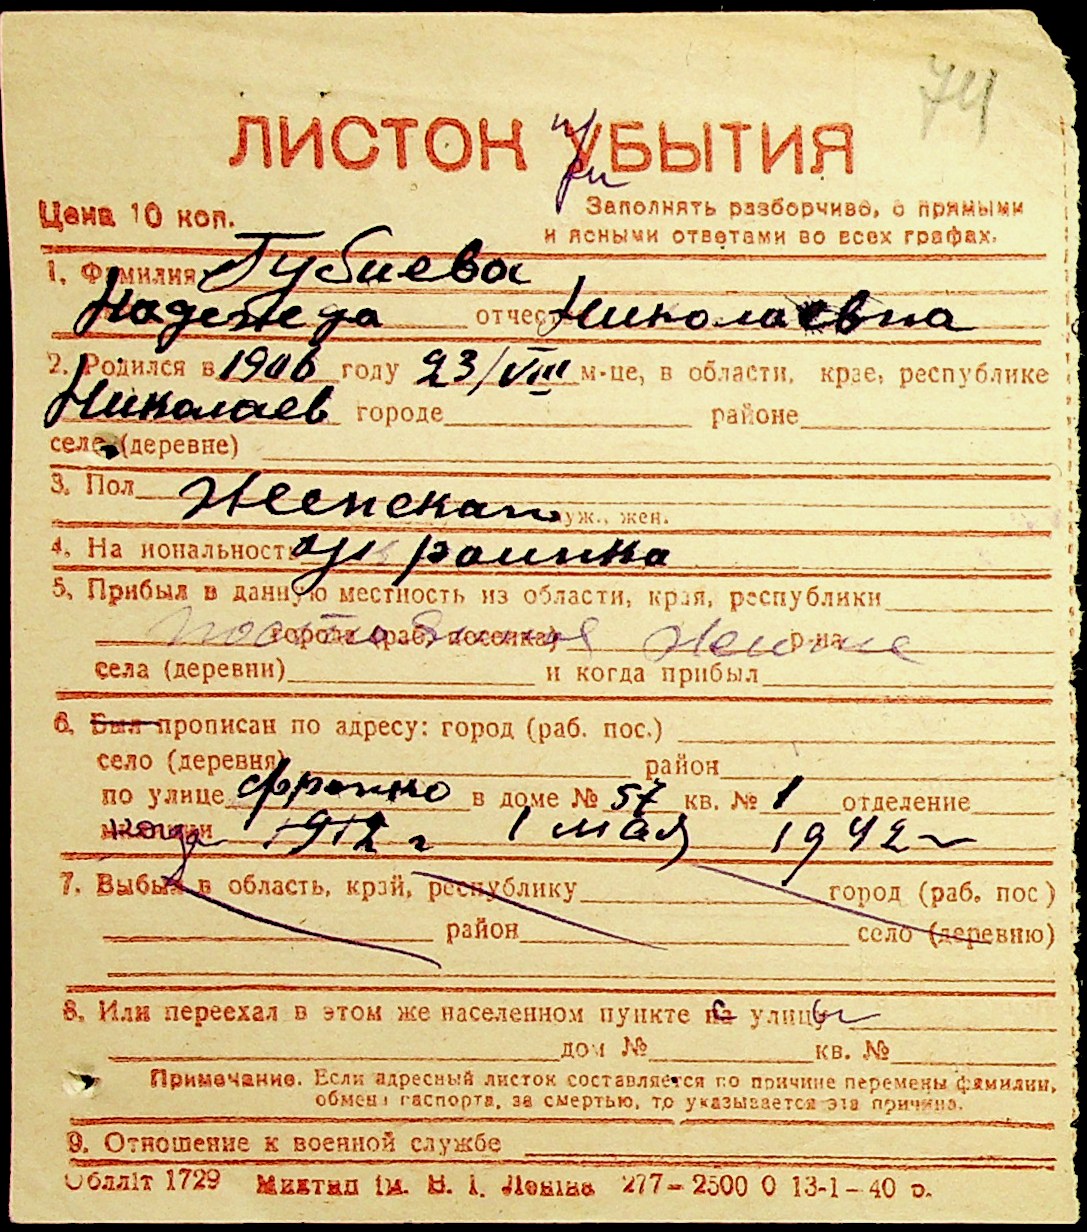 74
ЛИСТОК УБЫТИЯ
при
Цена 10 коп.
Заполнять разборчиво, с прямыми
и ясными ответами во всех графах.
1. Фамилия Губиева
Надежда отчест Николаевна
2. Родился в 1906 году 23/VIII м-це, в области, крае, республике
Николаев городе районе
селе (деревне)
3. Пол Женская муж., жен.
4. На иональность украинка
5. Прибыл в данную местность из области, края, республики
города (раб. поселка) р-на
села (деревни) и когда прибыл
6. Был прописан по адресу: город (раб. пос.)
село (деревня) район
по улице Франко в доме № 57 кв. № 1 отделение
милиции когда 1912 г 1 мая 1942
7. Выбыл в область, край, республику город (раб. пос)
район село (деревню)
8. Или переехал в этом же населенном пункте с улицы
дом № кв. №
Примечание. Если адресный листок составляется по причине перемены фамилии,
обмена паспорта, за смертью, то указывается эта причина.
9. Отношение к военной службе
Облліт 1729 Миктип ім. В. І. Леніна 277—2500 0 13-1-40 р.